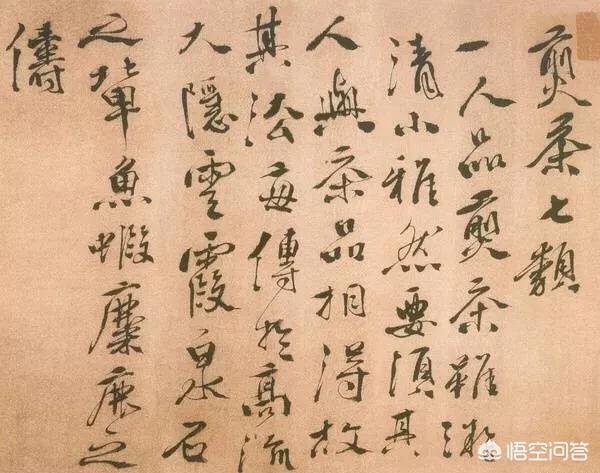 煎茶七類
一人品煎茶雖微
清小雅然要須其
人與茶品相得故
其法每傳於高流
大隱雲霞泉石
之輩魚蝦麋鹿之
儔
悟空问答